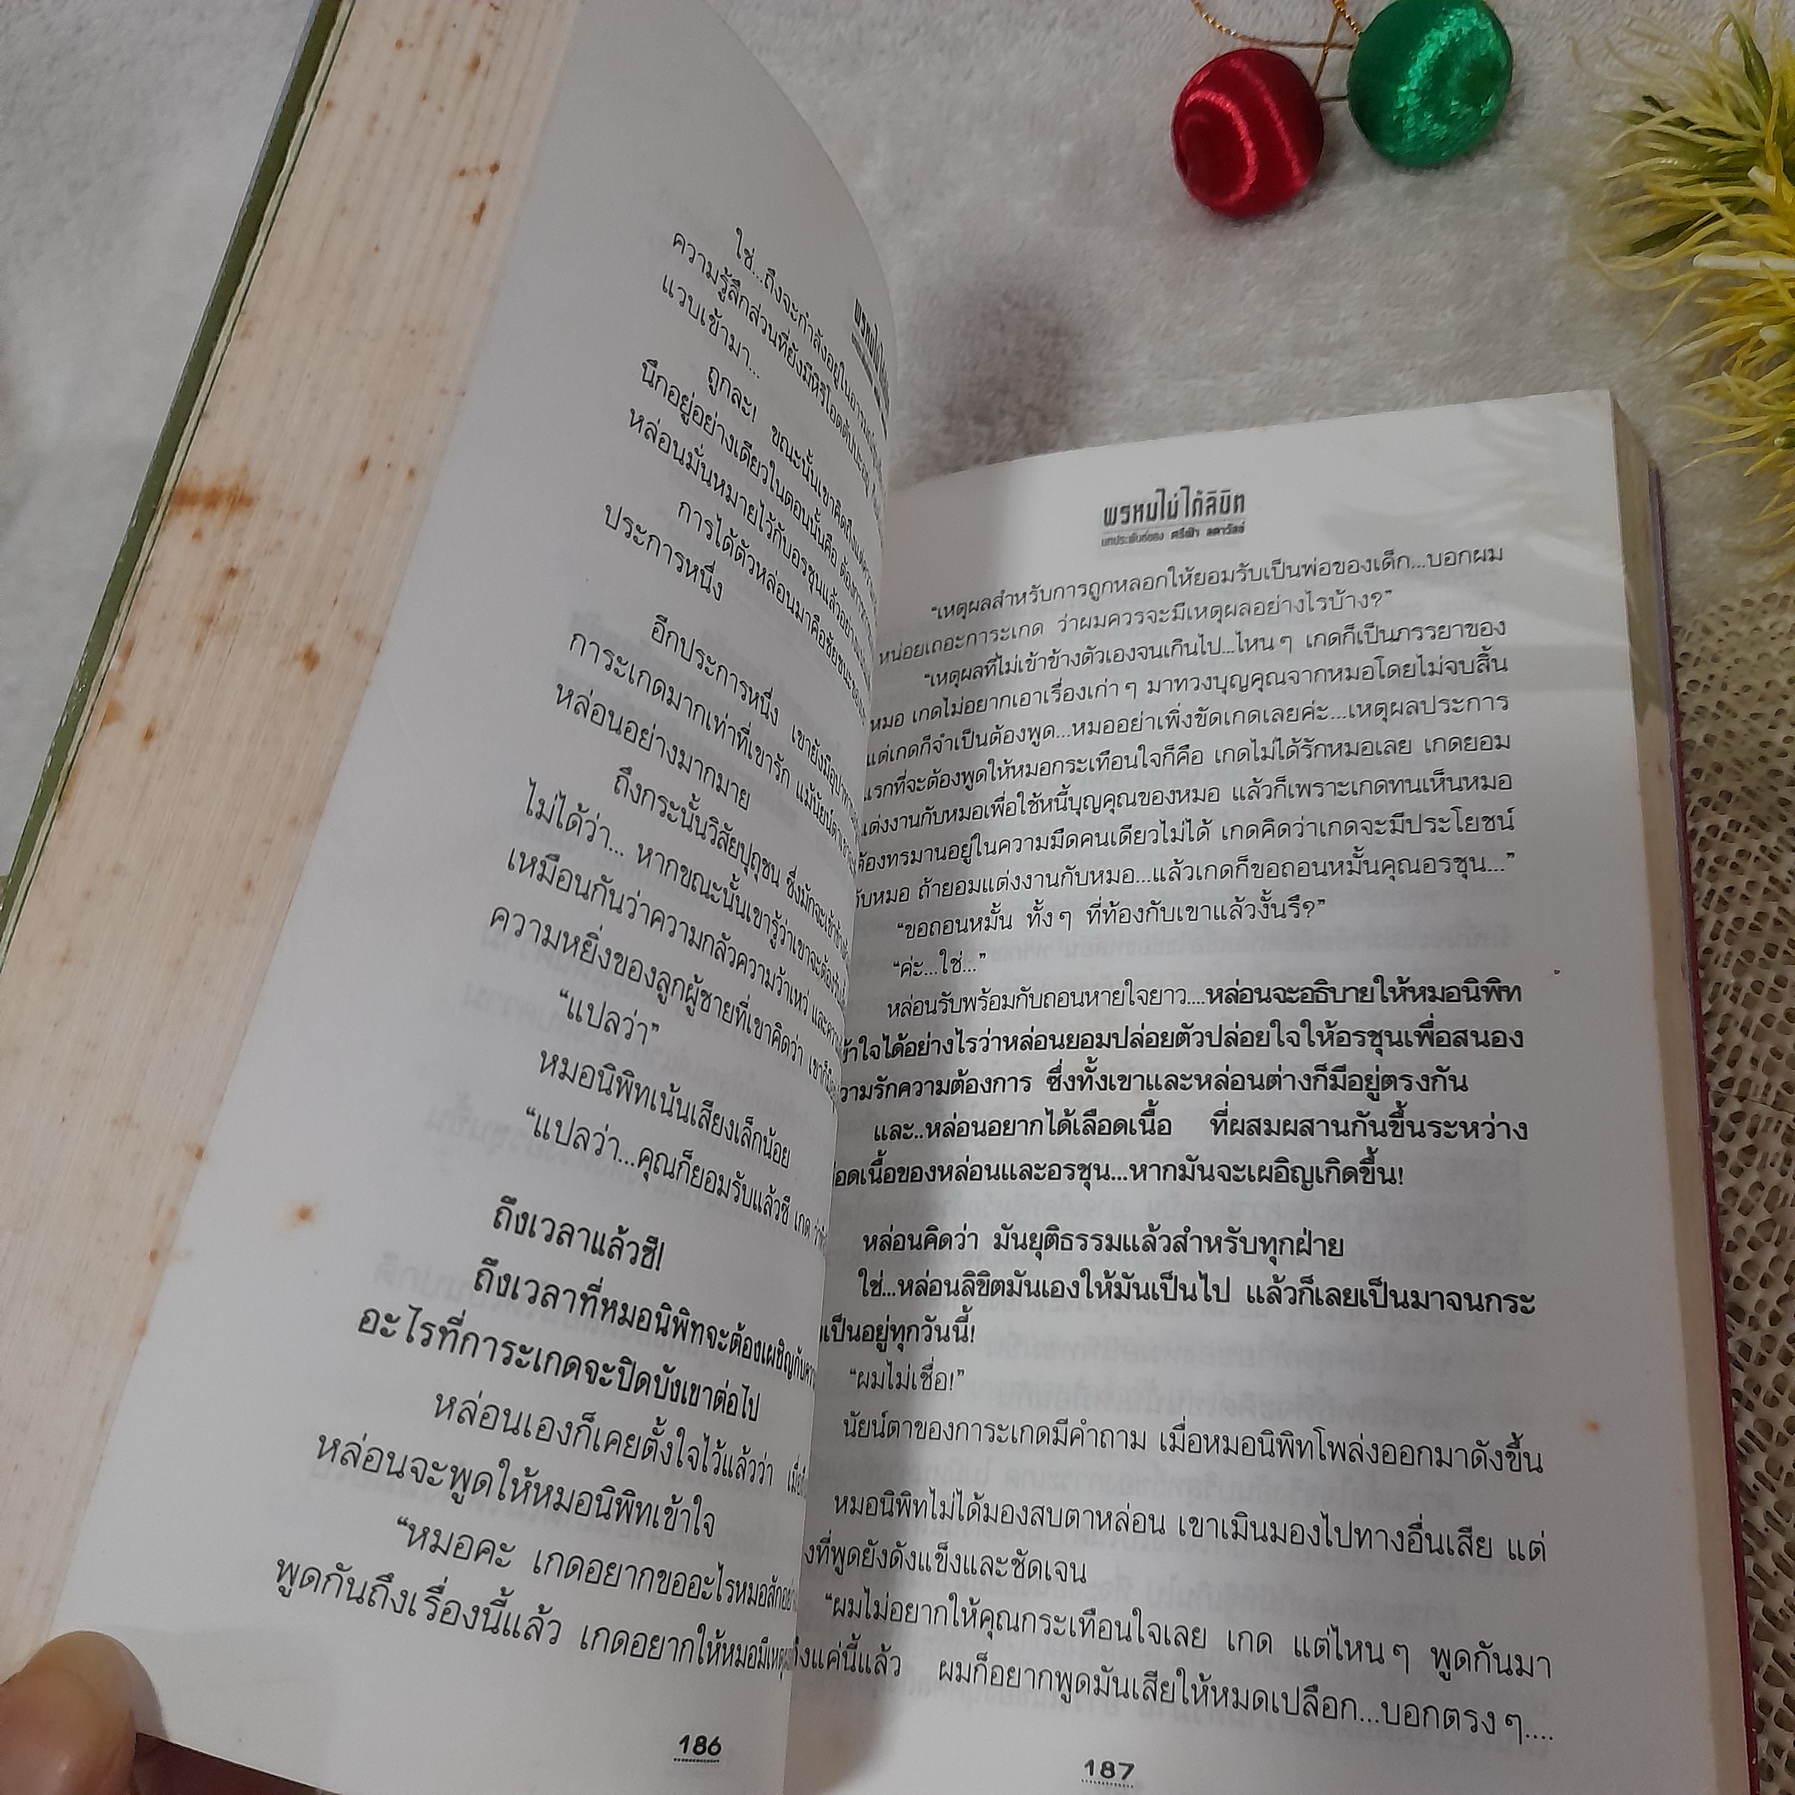 ใช่...ถึงจะกำลังอยู่ใน
ความรู้สึกส่วนที่ยังมีหิริโอตตัปปะอยู่
แวบเข้ามา...
ถูกละ! ขณะนั้นเขาคิดถึงแต่
นึกอยู่อย่างเดียวในตอนนั้นคือ ต้อง
หล่อนมั่นหมายไว้กับอรชุนแล้วอย่า
การได้ตัวหล่อนมาคือชัยชนะของ
ประการหนึ่ง
อีกประการหนึ่ง เขายังมี
การะเกดมากเท่าที่เขารัก แม้นัยน์ตา
หล่อนอย่างมากมาย
ถึงกระนั้นวิสัยปุถุชน ซึ่งมักจะเข้าข้าง
ไม่ได้ว่า... หากขณะนั้นเขารู้ว่าเขาจะต้อง
เหมือนกันว่าความกลัวความว้าเหว่ และ
ความหยิ่งของลูกผู้ชายที่เขาคิดว่า เขาก็
“แปลว่า”
หมอนิพิทเน้นเสียงเล็กน้อย
“แปลว่า...คุณก็ยอมรับแล้วซี เกด
ถึงเวลาแล้วซี!
ถึงเวลาที่หมอนิพิทจะต้องเผชิญกับ
อะไรที่การะเกดจะปิดบังเขาต่อไป
หล่อนเองก็เคยตั้งใจไว้แล้วว่า
หล่อนจะพูดให้หมอนิพิทเข้าใจ
“หมอคะ เกดอยากขออะไรหมอสัก
พูดกันถึงเรื่องนี้แล้ว เกดอยากให้หมอมี
186
พรหมไม่ได้ลิขิต
บทประพันธ์ของ ศรีฟ้า ลดาวัลย์
“เหตุผลสำหรับการถูกหลอกให้ยอมรับเป็นพ่อของเด็ก...บอกผม
หน่อยเถอะการะเกด ว่าผมควรจะมีเหตุผลอย่างไรบ้าง?”
“เหตุผลที่ไม่เข้าข้างตัวเองจนเกินไป...ไหนๆ เกดก็เป็นภรรยาของ
หมอ เกดไม่อยากเอาเรื่องเก่าๆ มาทวงบุญคุณจากหมอโดยไม่จบสิ้น
แต่เกดก็จำเป็นต้องพูด...หมออย่าเพิ่งขัดเกดเลยค่ะ...เหตุผลประการ
แรกที่จะต้องพูดให้หมอกระเทือนใจก็คือ เกดไม่ได้รักหมอเลย เกดยอม
แต่งงานกับหมอเพื่อใช้หนี้บุญคุณของหมอ แล้วก็เพราะเกดทนเห็นหมอ
ต้องทรมานอยู่ในความมืดคนเดียวไม่ได้ เกดคิดว่าเกดจะมีประโยชน์
กับหมอ ถ้ายอมแต่งงานกับหมอ...แล้วเกดก็ขอถอนหมั้นคุณอรชุน...”
“ขอถอนหมั้น ทั้งๆ ที่ท้องกับเขาแล้วงั้นรึ?”
“ค่ะ...ใช่...”
หล่อนรับพร้อมกับถอนหายใจยาว....หล่อนจะอธิบายให้หมอนิพิท
เข้าใจได้อย่างไรว่าหล่อนยอมปล่อยตัวปล่อยใจให้อรชุนเพื่อสนอง
ความรักความต้องการ ซึ่งทั้งเขาและหล่อนต่างก็มีอยู่ตรงกัน
และ..หล่อนอยากได้เลือดเนื้อ ที่ผสมผสานกันขึ้นระหว่าง
เลือดเนื้อของหล่อนและอรชุน...หากมันจะเผอิญเกิดขึ้น!
หล่อนคิดว่า มันยุติธรรมแล้วสำหรับทุกฝ่าย
ใช่...หล่อนลิขิตมันเองให้มันเป็นไป แล้วก็เลยเป็นมาจนกระ
เป็นอยู่ทุกวันนี้!
“ผมไม่เชื่อ!”
นัยน์ตาของการะเกดมีคำถาม เมื่อหมอนิพิทโพล่งออกมาดังขึ้น
หมอนิพิทไม่ได้มองสบตาหล่อน เขาเมินมองไปทางอื่นเสีย แต่
ที่พูดยังดังแข็งและชัดเจน
“ผมไม่อยากให้คุณกระเทือนใจเลย เกด แต่ไหนๆ พูดกันมา
ถึงแค่นี้แล้ว ผมก็อยากพูดมันเสียให้หมดเปลือก...บอกตรงๆ....
187